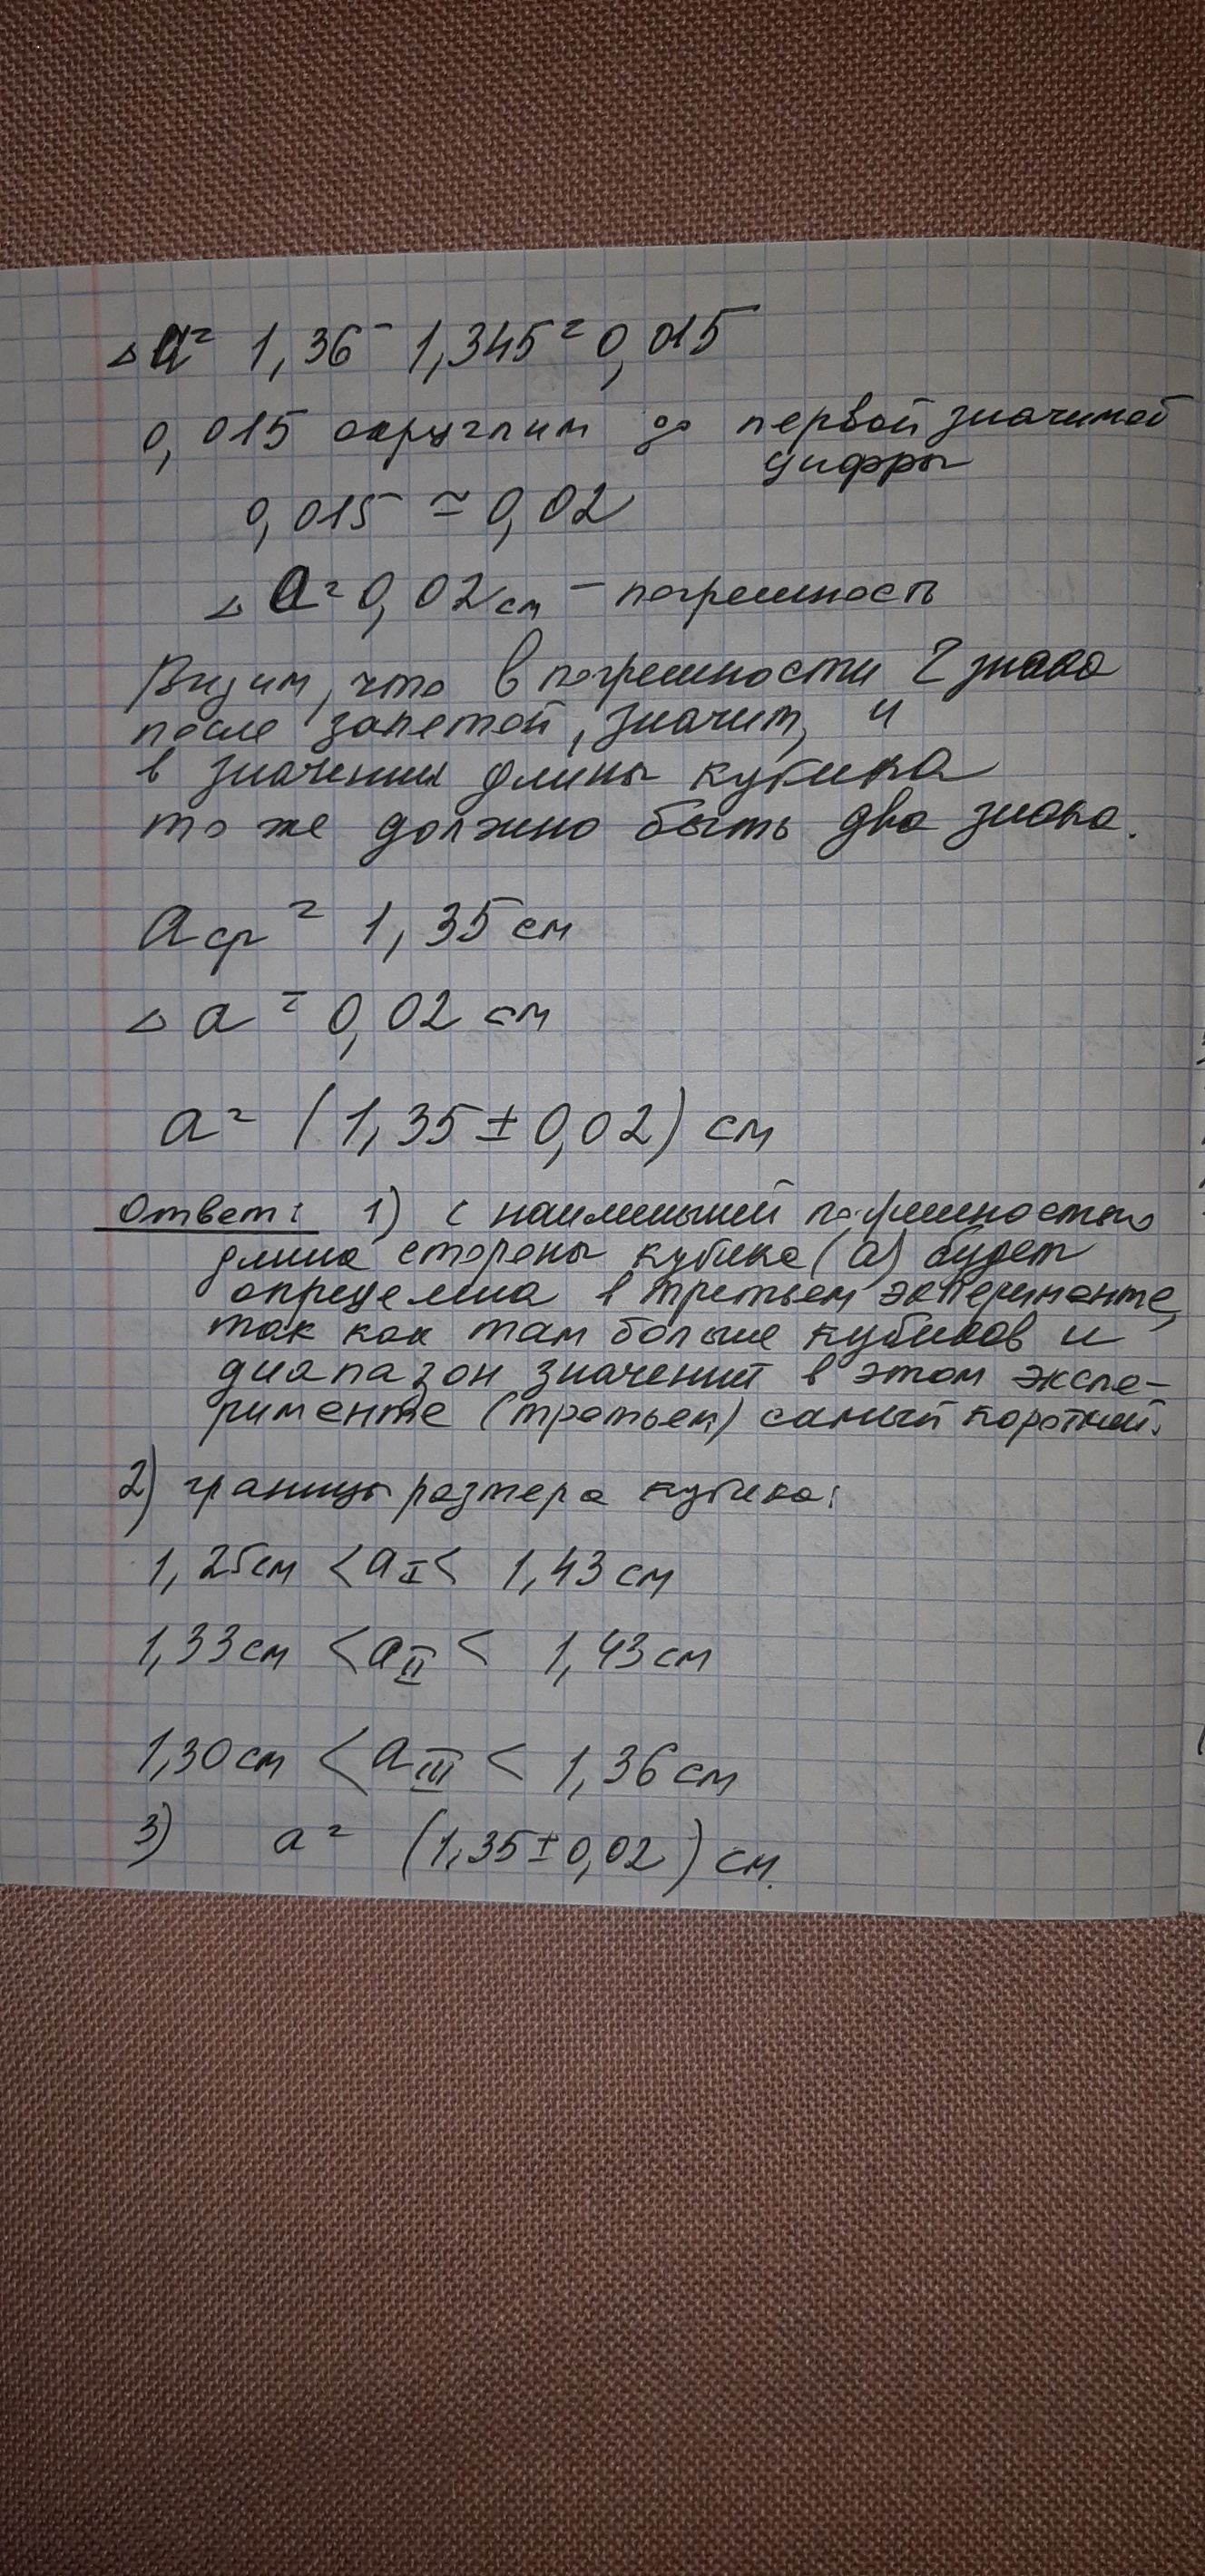 △a = 1,36 - 1,345 = 0,015
0,015 округлим до первой значимой
цифры
0,015 ≃ 0,02
△a = 0,02 см - погрешность
Видим, что в погрешности 2 знака
после запятой, значит, и
в значении длины кубика
тоже должно быть два знака.
aср = 1,35 см
△a = 0,02 см
a = (1,35 ± 0,02) см
Ответ: 1) с наименьшей погрешностью
длина стороны кубика (a) будет
определена в третьем эксперименте,
так как там больше кубиков и
диапазон значений в этом экспе-
рименте (третьем) самый короткий.
2) границы размера кубика:
1,25 см < aI < 1,43 см
1,33 см < aII < 1,43 см
1,30 см < aIII < 1,36 см
3) a = (1,35 ± 0,02) см.